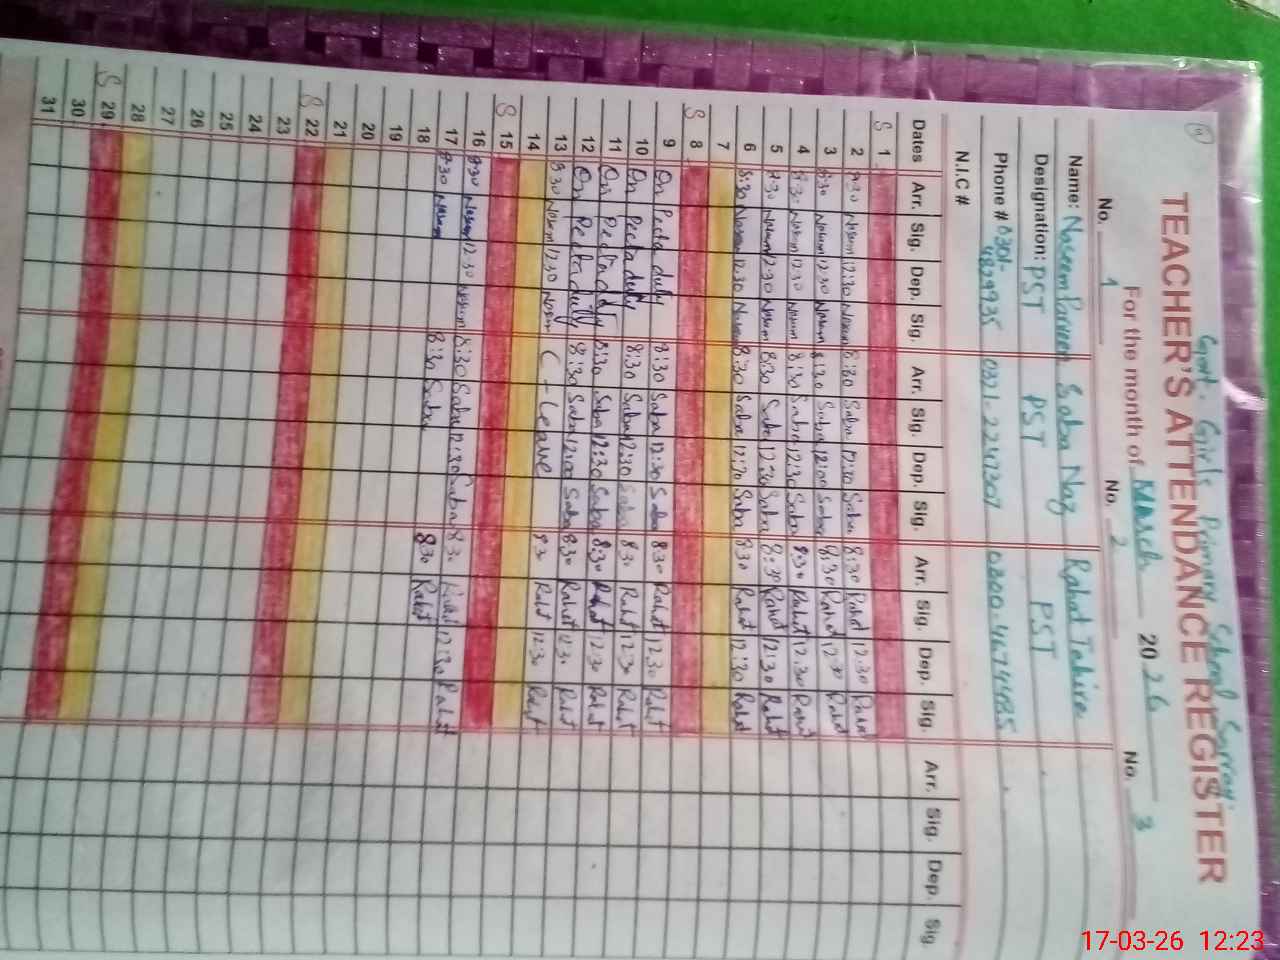 Govt. Girls Primary School Sarray.
TEACHER'S ATTENDANCE REGISTER
For the month of March 2026
No. 1 No. 2 No. 3
Name: Naseem Parveen Saba Naz Rahat Tahira
Designation: PST PST PST
Phone # 0301- 0321-2247307 0300-4674485
N.I.C #
Dates Arr. Sig. Dep. Sig. Arr. Sig. Dep. Sig. Arr. Sig. Dep. Sig. Arr. Sig. Dep. Sig.
S 1
2 8:30 Nasem 12:30 Nasem 8:30 Saba 12:30 Saba 8:30 Rahat 12:30 Rahat
3 8:30 Nasem 12:30 Nasem 8:30 Saba 12:00 Saba 8:30 Rahat 12:30 Rahat
4 8:30 Nasem 12:30 Nasem 8:30 Saba 12:30 Saba 8:30 Rahat 12:30 Rahat
5 8:30 Nasem 12:30 Nasem 8:30 Saba 12:30 Saba 8:30 Rahat 12:30 Rahat
6 8:30 Nasem 12:30 Nasem 8:30 Saba 12:30 Saba 8:30 Rahat 12:30 Rahat
7
S 8
9 On Pecta duty 8:30 Saba 12:30 Saba 8:30 Rahat 12:30 Rahat
10 On Pecta duty 8:30 Saba 12:30 Saba 8:30 Rahat 12:30 Rahat
11 On Pecta duty 8:30 Saba 12:30 Saba 8:30 Rahat 12:30 Rahat
12 On Pecta duty 8:30 Saba 12:00 Saba 8:30 Rahat 12:30 Rahat
13 8:30 Nasem 12:30 Nasem C-Leave 8:30 Rahat 12:30 Rahat
14
S 15
16 8:30 Nasem 12:30 Nasem 8:30 Saba 12:30 Saba 8:30 Rahat 12:30 Rahat
17 8:30 Nasem 8:30 Saba 8:30 Rahat
18
19
20
21
S 22
23
24
25
26
27
28
S 29
30
31
17-03-26 12:23